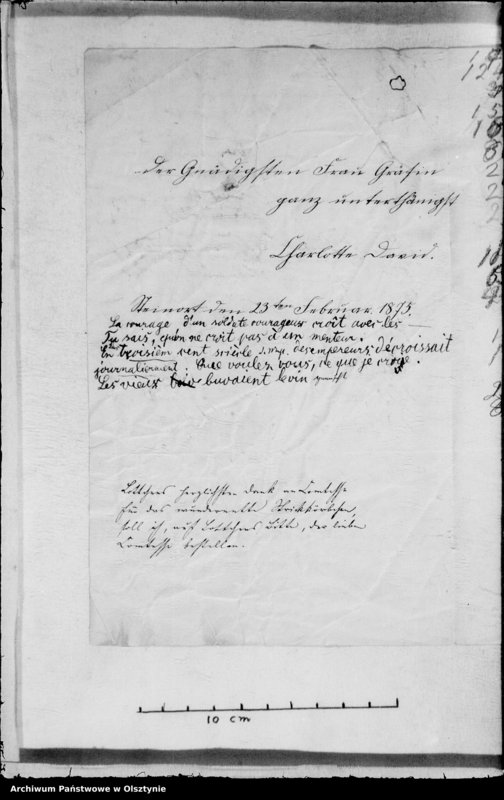 der Gnädigsten Frau Gräfin
ganz unterthänigst
Charlotte David.
Steinort den 23ten Februar 1873.
La courage d'un soldate courageux croît avec les —
Tu sais, qu'on ne croit pas à un menteur.
En troisième siècle des empereurs décroissait
journalièrement. Que voulez vous, ce que je croye.
Les vieux buvaient le vin
Lottchens herzlichsten Dank an Comtesse
für das wundernette Strickkörbchen,
soll ich, auf Lottchens Bitte, der lieben
Comtesse bestellen.
10 cm
Archiwum Państwowe w Olsztynie